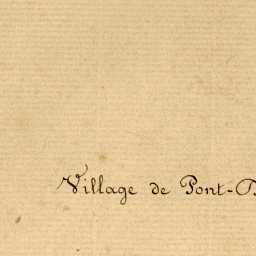 Village de Pont-